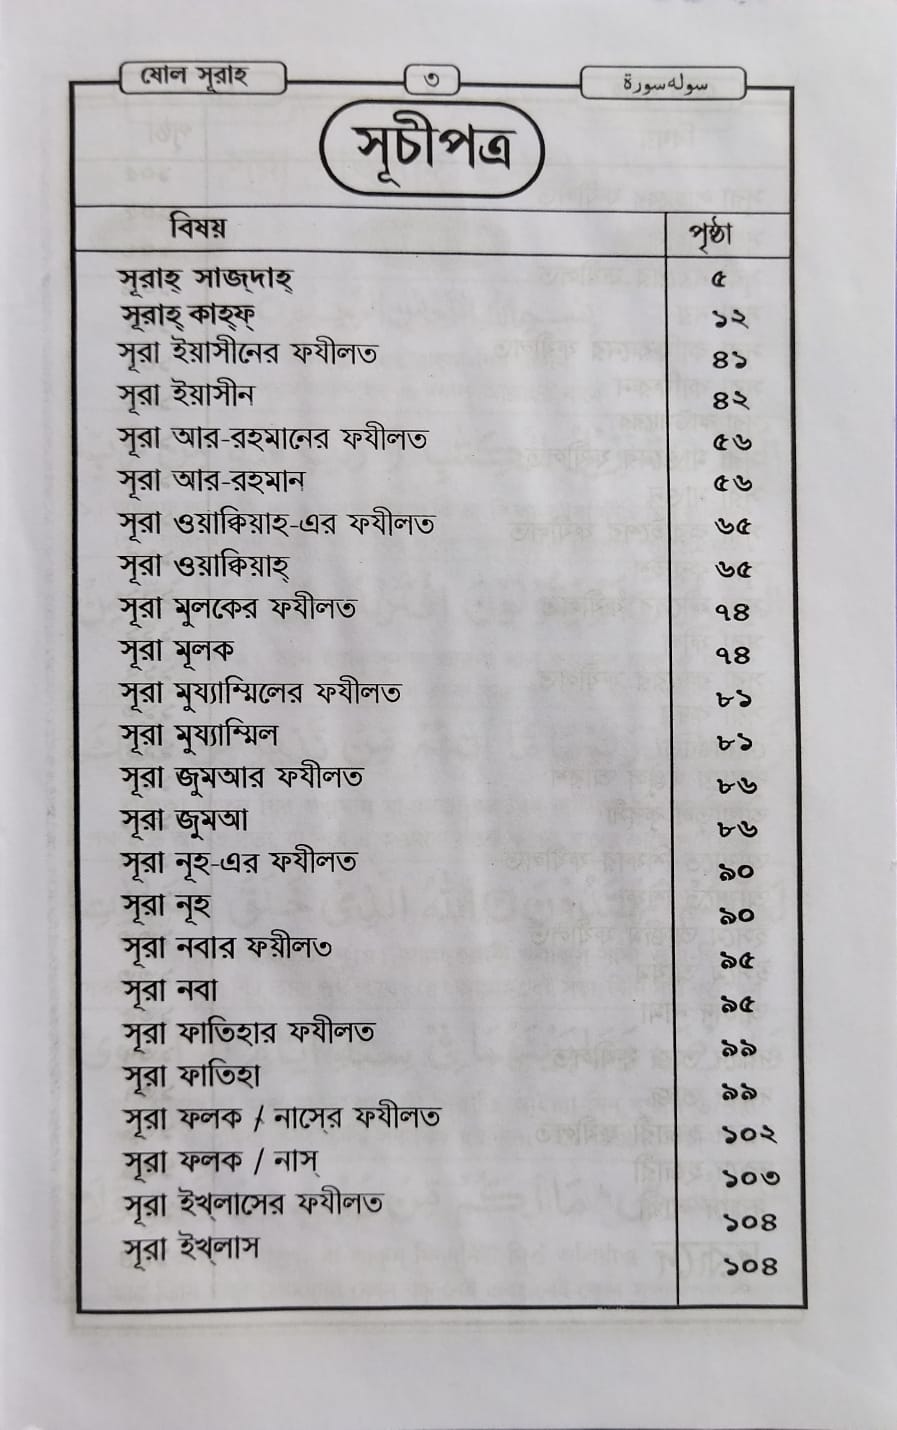 ষোল সূরাহ ৩ سوله سورة
সূচীপত্র
বিষয় পৃষ্ঠা
সূরাহ্ সাজ্দাহ্ ৫
সূরাহ্ কাহ্ফ্ ১২
সূরা ইয়াসীনের ফযীলত ৪১
সূরা ইয়াসীন ৪২
সূরা আর-রহমানের ফযীলত ৫৬
সূরা আর-রহমান ৫৬
সূরা ওয়াক্বিয়াহ-এর ফযীলত ৬৫
সূরা ওয়াক্বিয়াহ্ ৬৫
সূরা মুলকের ফযীলত ৭৪
সূরা মূলক ৭৪
সূরা মুয্যাম্মিলের ফযীলত ৮১
সূরা মুয্যাম্মিল ৮১
সূরা জুমআর ফযীলত ৮৬
সূরা জুমআ ৮৬
সূরা নূহ-এর ফযীলত ৯০
সূরা নূহ ৯০
সূরা নবার ফয়ীলত ৯৫
সূরা নবা ৯৫
সূরা ফাতিহার ফযীলত ৯৯
সূরা ফাতিহা ৯৯
সূরা ফলক / নাস্বের ফযীলত ১০২
সূরা ফলক / নাস্ ১০৩
সূরা ইখ্লাসের ফযীলত ১০৪
সূরা ইখ্লাস ১০৪